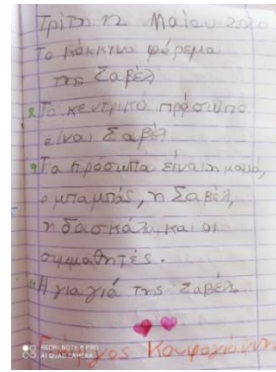 Τρίτη 12 Μαΐου 2020
Το κόκκινο φόρεμα
της Ζαβέλ
8 Το κεντρικό πρόσωπο
είναι Ζαβέλ
9 Τα πρόσωπα είναι η μαμά,
ο μπαμπάς, η Ζαβέλ,
η δασκάλα και οι
συμμαθητές.
Η γιαγιά της Ζαβέλ.
REDMI NOTE 8 PRO
AI QUAD CAMERA